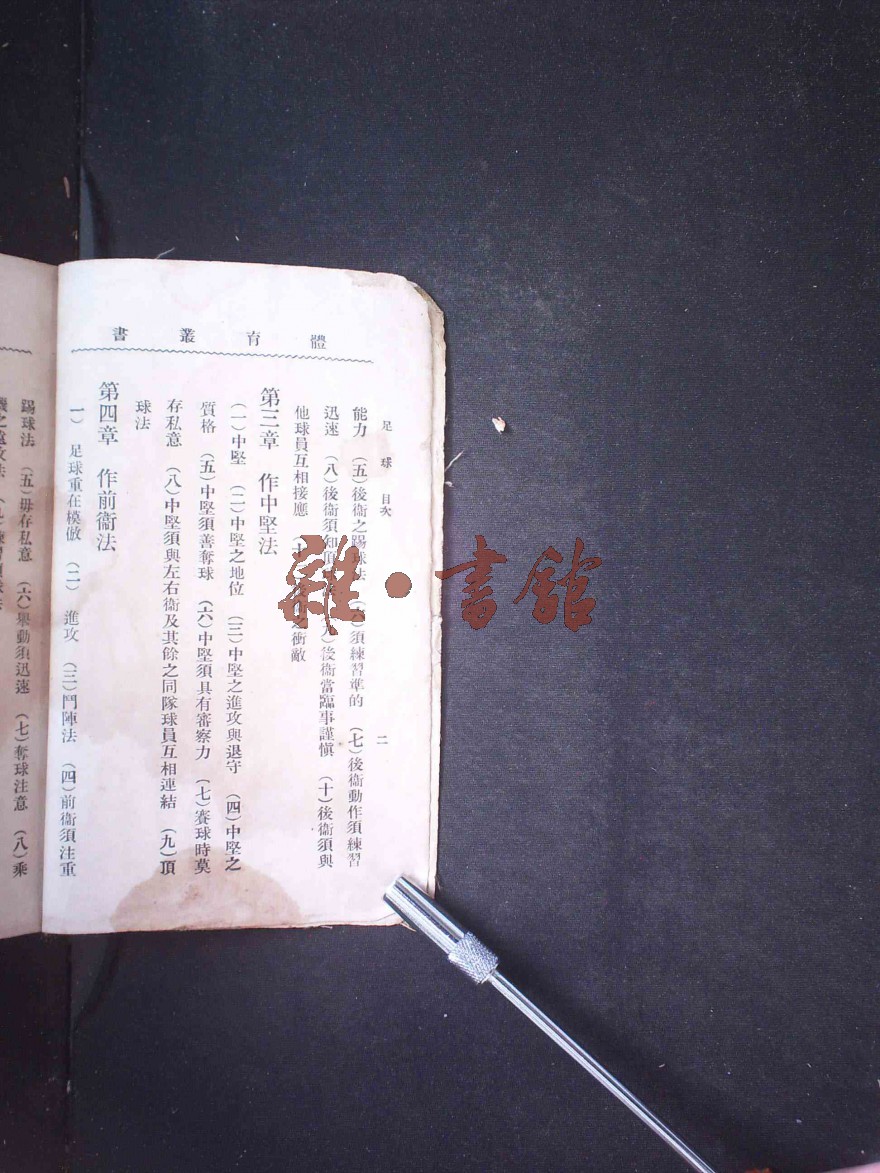 體育叢書
足球 目次
二
能力 (五)後衞之踢球法 須練習準的 (七)後衞動作須練習
迅速 (八)後衞須知頂 後衞當臨事謹慎 (十)後衞須與
他球員互相接應 之衝敵
第三章 作中堅法
(一)中堅 (二)中堅之地位 (三)中堅之進攻與退守 (四)中堅之
質格 (五)中堅須善奪球 (六)中堅須具有審察力 (七)賽球時莫
存私意 (八)中堅須與左右衞及其餘之同隊球員互相連結 (九)頂
球法
第四章 作前衞法
一) 足球重在模倣 (二) 進攻 (三)鬥陣法 (四)前衞須注重
踢球法 (五)毋存私意 (六)舉動須迅速 (七)奪球注意 (八)乘
雜·書館